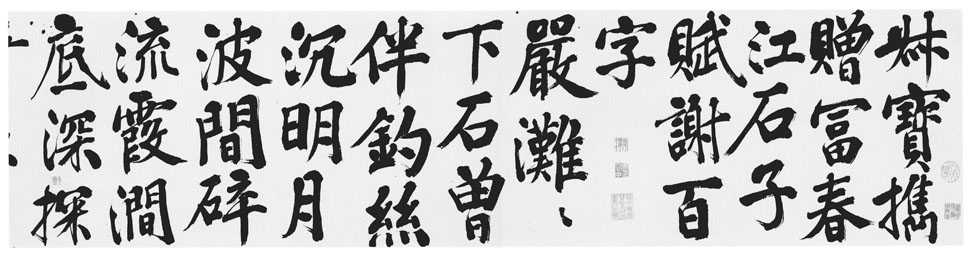 叔寶攜
贈冨春
江石子
賦謝百
字
嚴灘〻
下石曾
伴釣絲
沉明月
波間碎
流霞澗
底深探